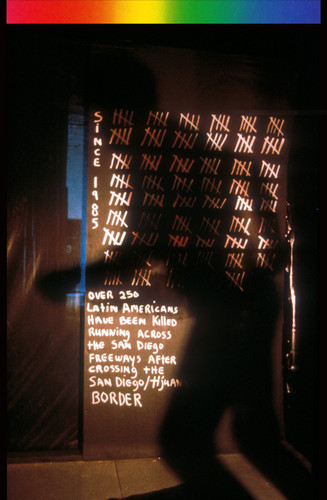 SINCE 1985
OVER 250
LATIN AMERICANS
HAVE BEEN KILLED
RUNNING ACROSS
THE SAN DIEGO
FREEWAYS AFTER
CROSSING THE
SAN DIEGO/TIJUANA
BORDER